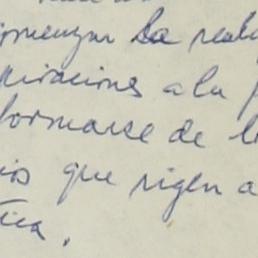 comenzar la reali
piraciones a la p
formarse de l
ios que rigen a
tica.